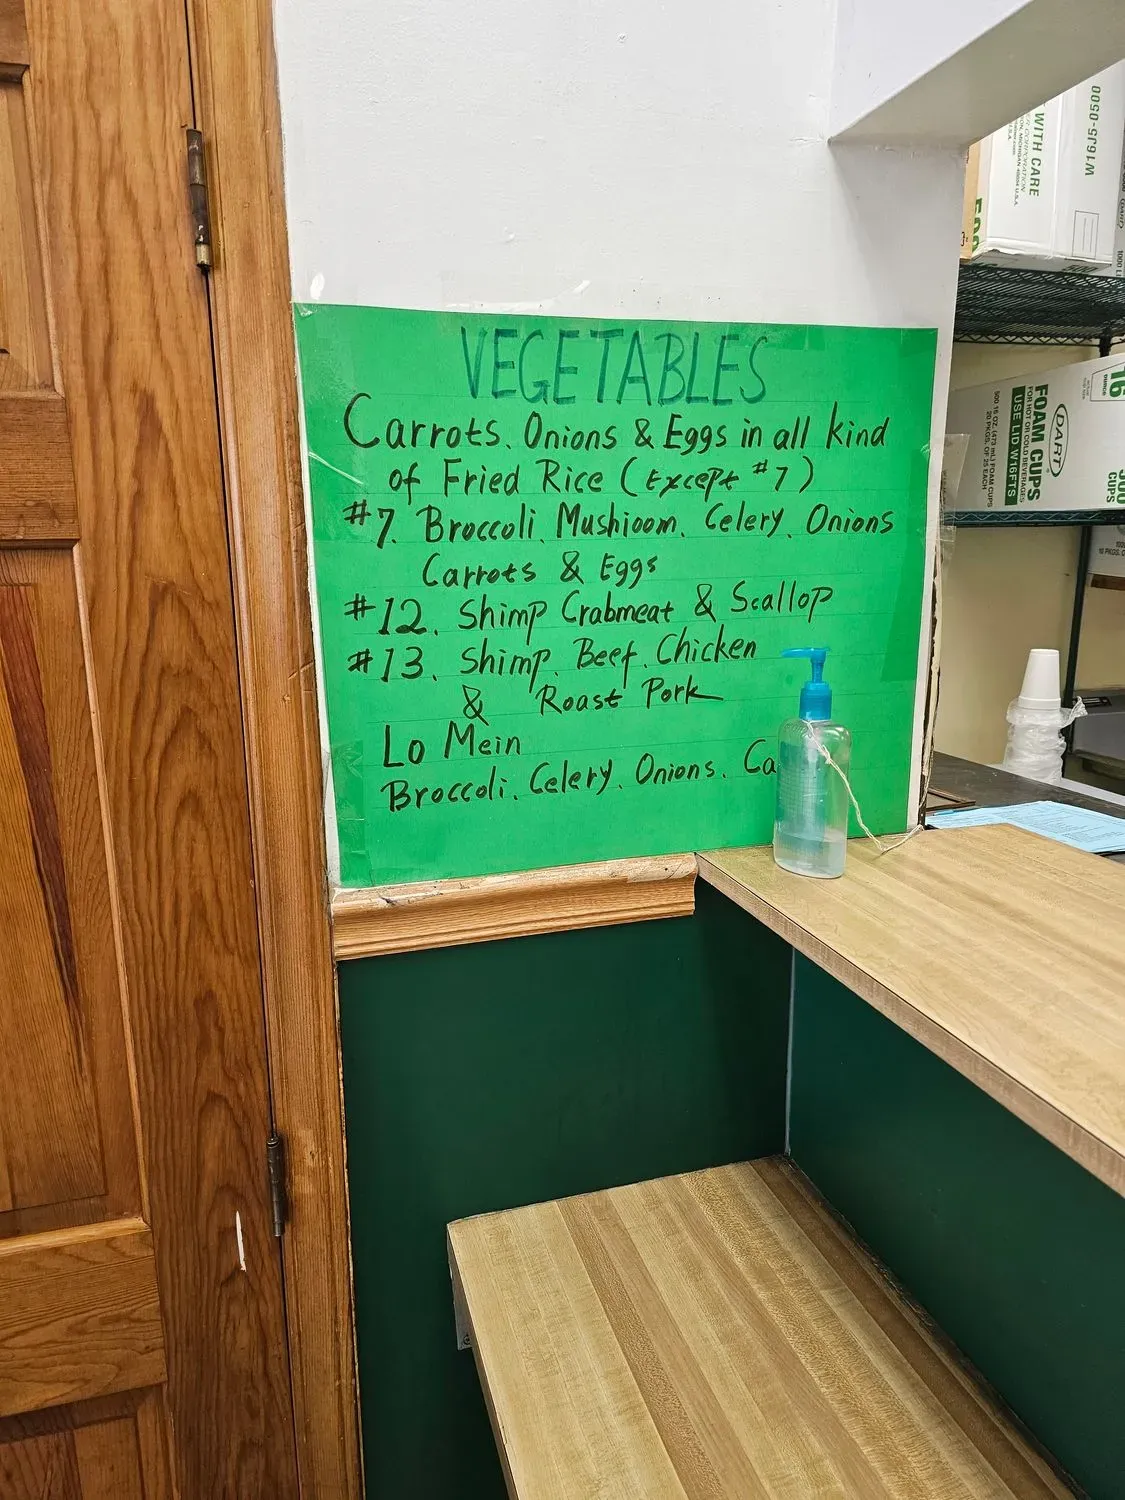 VEGETABLES
Carrots, Onions & Eggs in all kind
of Fried Rice (Except #7)
#7. Broccoli, Mushioom, Celery, Onions
Carrots & Eggs
#12. Shimp Crabmeat & Scallop
#13. Shimp, Beef, Chicken
& Roast Pork
Lo Mein
Broccoli, Celery, Onions, Ca
WITH CARE
W16J5-0500
500
DART
16
OUNCE
FOAM CUPS
FOR HOT OR COLD BEVERAGES
USE LID W16FTS
500 16 OZ. (473 mL) FOAM CUPS
20 PKGS. OF 25 EACH
500
CUPS